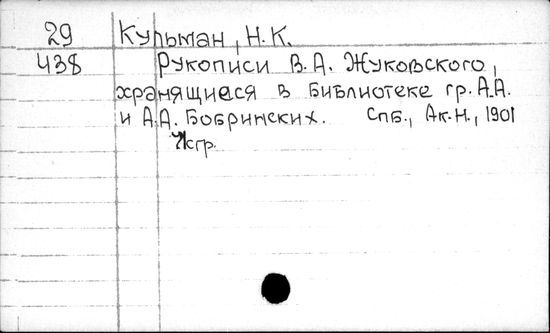 29 Кульман, Н. К.
438 Рукописи В. А. Жуковского,
хранящиеся в библиотеке гр. А.А.
и А.А. Бобринских. Спб., Ак. Н., 1901
стр.